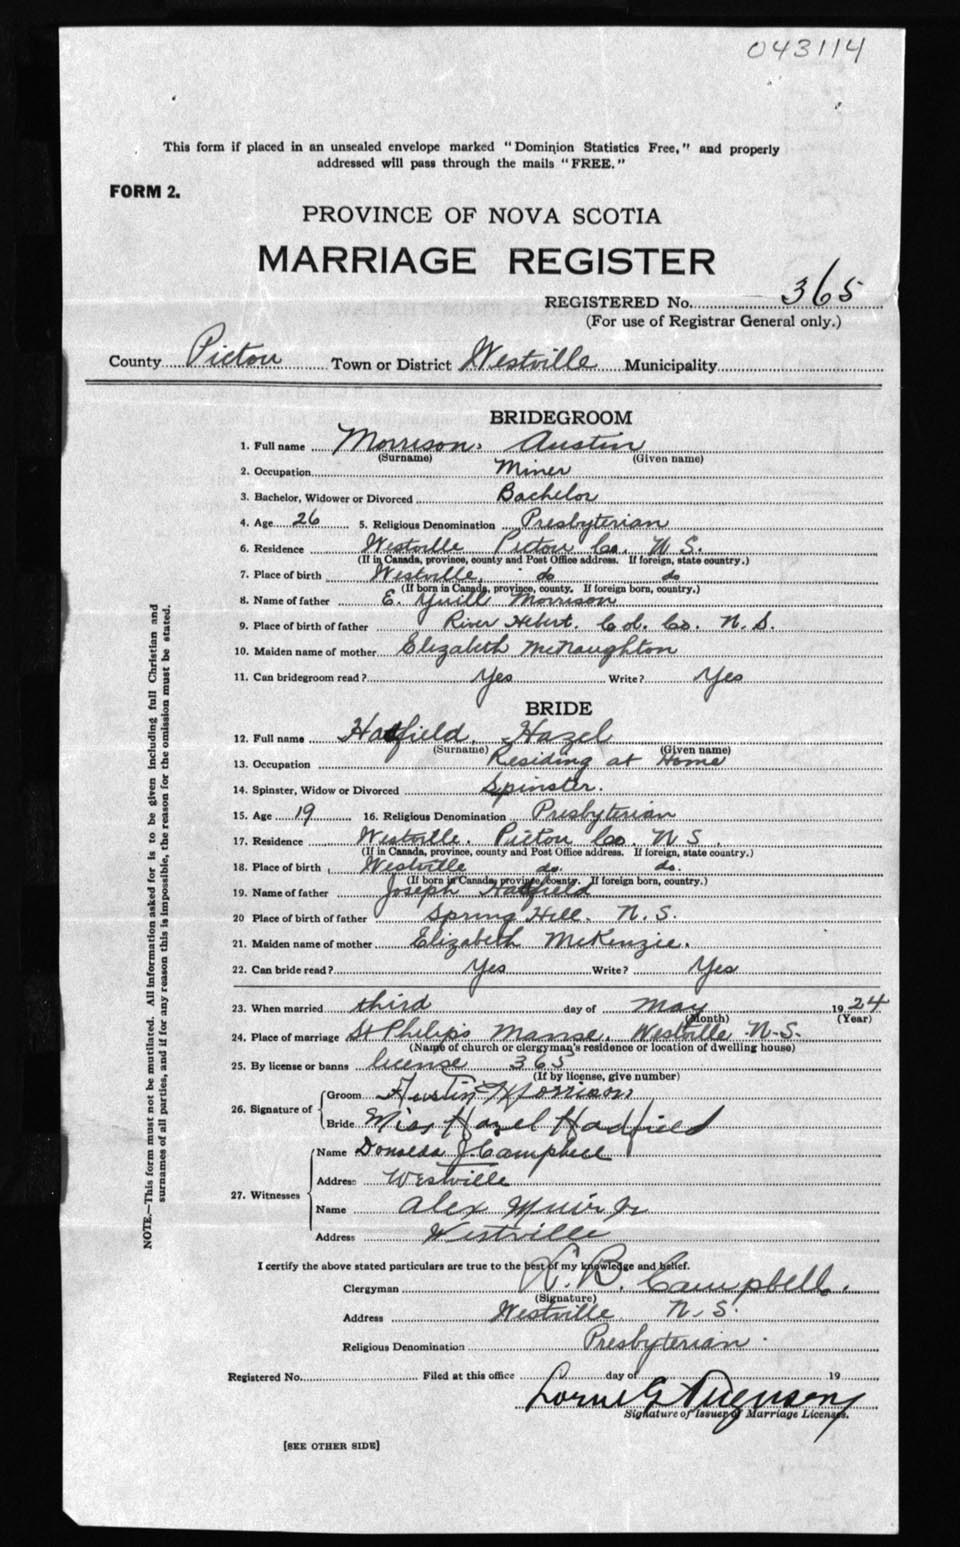 043114
This form if placed in an unsealed envelope marked "Dominion Statistics Free," and properly
addressed will pass through the mails "FREE."
FORM 2.
PROVINCE OF NOVA SCOTIA
MARRIAGE REGISTER
REGISTERED No. 365
(For use of Registrar General only.)
County Pictou Town or District Westville Municipality
BRIDEGROOM
1. Full name Morrison, Austin
(Surname) (Given name)
2. Occupation Miner
3. Bachelor, Widower or Divorced Bachelor
4. Age 26 5. Religious Denomination Presbyterian
6. Residence Westville Pictou Co. N.S.
(If in Canada, province, county and Post Office address. If foreign, state country.)
7. Place of birth Westville, do do
(If born in Canada, province, county. If foreign born, country.)
8. Name of father E. Yuill Morrison
9. Place of birth of father River Hebert. C d. Co. N.S.
10. Maiden name of mother Elizabeth McNaughton
11. Can bridegroom read? Yes Write? Yes
BRIDE
12. Full name Hatfield, Hazel
(Surname) (Given name)
13. Occupation Residing at Home
14. Spinster, Widow or Divorced Spinster.
15. Age 19 16. Religious Denomination Presbyterian
17. Residence Westville. Pictou Co. N.S.
(If in Canada, province, county and Post Office address. If foreign, state country.)
18. Place of birth Westville do. do.
(If born in Canada, province, county. If foreign born, country.)
19. Name of father Joseph Hatfield
20 Place of birth of father Spring Hill. N.S.
21. Maiden name of mother Elizabeth McKenzie.
22. Can bride read? Yes Write? Yes
23. When married third day of May 1924
(Month) (Year)
24. Place of marriage St Philips Manse, Westville N.S.
(Name of church or clergyman's residence or location of dwelling house)
25. By license or banns license 365
(If by license, give number)
26. Signature of Groom Austin Morrison
Bride Miss Hazel Hadfield
27. Witnesses Name Donelda J. Campbell
Address Westville
Name Alex Muir Jr
Address Westville
I certify the above stated particulars are true to the best of my knowledge and belief.
Clergyman B. Campbell.
(Signature)
Address Westville N.S.
Religious Denomination Presbyterian
Registered No. Filed at this office day of 19
Lorne G
Signature of Issuer of Marriage Licenses.
[SEE OTHER SIDE]
NOTE.—This form must not be mutilated. All information asked for is to be given including full Christian and
surnames of all parties, and if for any reason this is impossible, the reason for the omission must be stated.